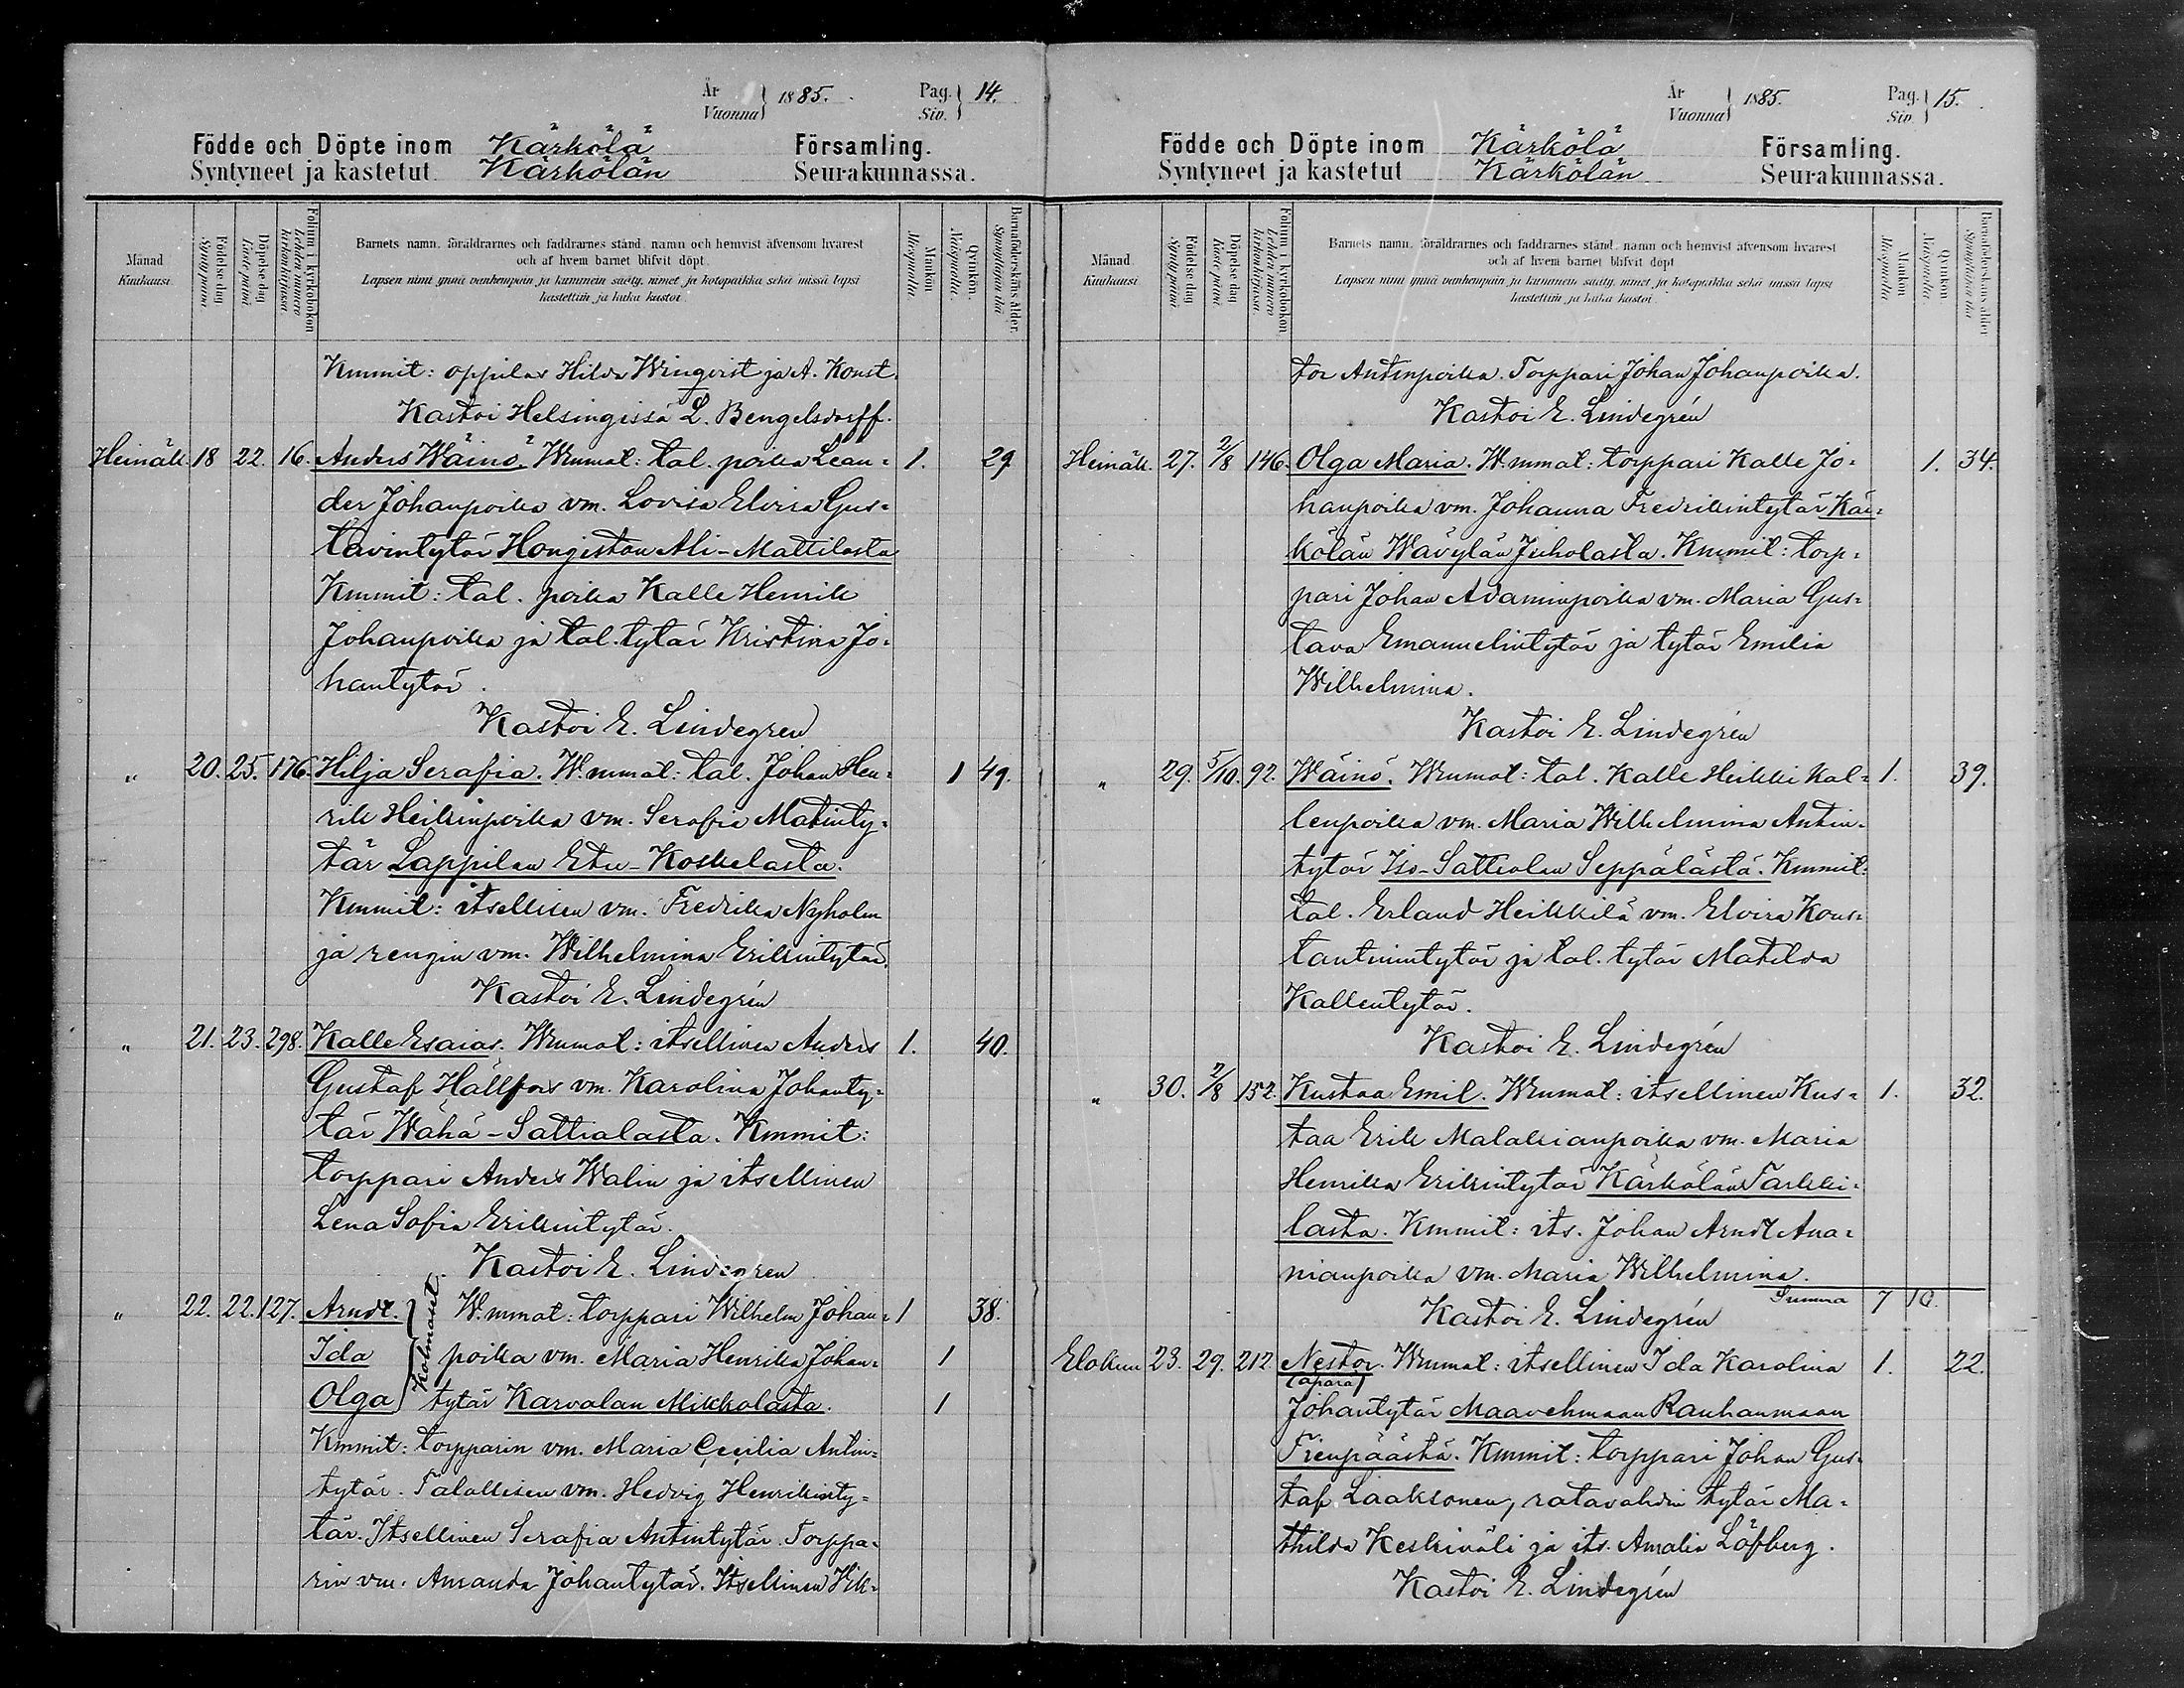 År 1885. Pag. 14.
Vuonna Siv.
Födde och Döpte inom Kärkölä Församling.
Syntyneet ja kastetut Kärkölän Seurakunnassa.
Månad Kuukausi
Födelsedag Syntypäivä
Döpelsedag Kastepäivä
Folium i kyrkoboken Lehden numero kirkonkirjassa.
Barnets namn, föräldrarnes och faddrarnes stånd, namn och hemvist äfvensom hvarest
och af hvem barnet blifvit döpt.
Lapsen nimi ynnä vanhempain ja kummein sääty, nimet ja kotopaikka sekä missä lapsi
kastettiin ja kuka kastoi.
Mankön Miespuolia.
Qvinkön. Naispuolia.
Barnaföderskans ålder. Synnyttäjän ikä
Kmmit: oppilas Hilda Winqvist ja A. Konst.
Kastoi Helsingissä L. Bengelsdorff.
Heinäk. 18 22. 16. Anders Wäinö. Wmmat: tal. poika Lean- 1. 29
der Johanpoika vm. Lovisa Elvira Gus-
tavintytär Hongiston Ali-Mattilasta
Kmmit: tal. poika Kalle Henrik
Johanpoika ja tal. tytär Kristina Jo-
hantytär.
Kastoi E. Lindegren
" 20. 25. 176. Hilja Serafia. Wmmat: tal. Johan Hen- 1 49.
rik Heikinpoika vm. Serafia Matinty-
tär Lappilan Etu-Koskelasta.
Kmmit: itsellisen vm. Fredrika Nyholm
ja rengin vm. Wilhelmina Erikintytär.
Kastoi E. Lindegrén
" 21. 23. 298. Kalle Esaias. Wmmat: itsellinen Anders 1. 40.
Gustaf Hällfors vm. Karolina Johanty-
tär Wähä-Sattialasta. Kmmit:
torppari Anders Walin ja itsellinen
Lena Sofia Erikintytär.
Kastoi E. Lindegren
" 22. 22. 127. Arndt. Wmmat: torppari Wilhelm Johan- 1 38.
Ida Kolmoset. poika vm. Maria Henrika Johan- 1
Olga tytär Karvalan Mikkolasta. 1
Kmmit: torpparin vm. Maria Cecilia Antin-
tytär. Talollisen vm. Hedvig Henrikinty-
tär. Itsellinen Serafia Antintytär. Torppa-
rin vm. Amanda Johantytär. Itsellinen Vik-
År 1885. Pag. 15.
Vuonna Siv.
Födde och Döpte inom Kärkölä Församling.
Syntyneet ja kastetut Kärkölän Seurakunnassa.
Månad Kuukausi
Födelsedag Syntypäivä
Döpelsedag Kastepäivä
Folium i kyrkoboken Lehden numero kirkonkirjassa.
Barnets namn, föräldrarnes och faddrarnes stånd, namn och hemvist äfvensom hvarest
och af hvem barnet blifvit döpt
Lapsen nimi ynnä vanhempain ja kummein sääty, nimet ja kotopaikka sekä missä lapsi
kastettiin ja kuka kastoi.
Mankön Miespuolia
Qvinkön Naispuolia.
Barnaföderskans ålder Synnyttäjän ikä
tor Antinpoika. Torppari Johan Johanpoika.
Kastoi E. Lindegrén
Heinäk. 27. 2/8 146. Olga Maria. Wmmat: torppari Kalle Jo- 1. 34.
hanpoika vm. Johanna Fredrikintytär Kär-
kölän Wävylän Juholasta. Kmmit: torp-
pari Johan Adaminpoika vm. Maria Gus-
tava Emanuelintytär ja tytär Emilia
Wilhelmina.
Kastoi E. Lindegrén
" 29. 5/10. 92. Wäinö. Wmmat: tal. Kalle Heikki Kal- 1. 39.
lenpoika vm. Maria Wilhelmina Antin-
tytär Iso-Sattialan Seppälästä. Kmmit:
tal. Erland Heikkilä vm. Elvira Kons-
tantinintytär ja tal. tytär Matilda
Kallentytär.
Kastoi E. Lindegrén
" 30. 2/8 152. Kustaa Emil. Wmmat: itsellinen Kus- 1. 32.
taa Erik Malakianpoika vm. Maria
Henrika Erikintytär Kärkölän Tarkki-
lasta. Kmmit: its. Johan Arndt Ana-
nianpoika vm. Maria Wilhelmina.
Summa 7 10.
Kastoi E. Lindegrén
Elokuu 23. 29. 212. Nestor. Wmmat: itsellinen Ida Karolina 1. 22.
(äpärä)
Johantytär Maavehmaan Rauhanmaan
Tienpäästä. Kmmit: torppari Johan Gus-
taf Laaksonen, ratavahdin tytär Ma-
thilda Keskiväli ja its. Amalia Löfberg.
Kastoi E. Lindegrén